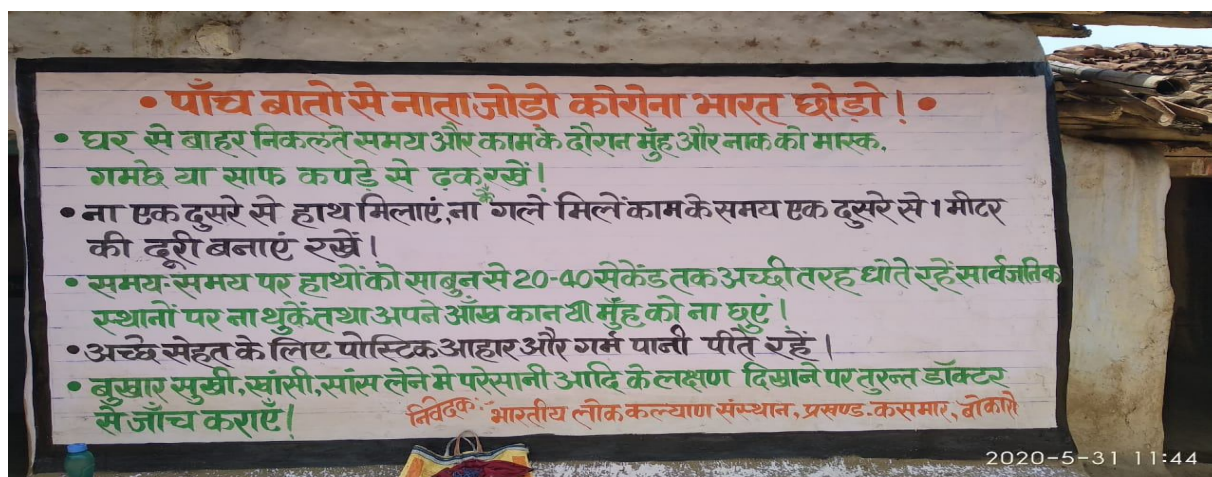 • पाँच बातो से नाता जोड़ो कोरोना भारत छोड़ो! •
• घर से बाहर निकलते समय और काम के दौरान मुँह और नाक को मास्क,
गमछे या साफ कपड़े से ढ़क रखें!
• ना एक दुसरे से हाथ मिलाएं, ना कै गले मिलें काम के समय एक दुसरे से 1 मीटर
की दूरी बनाएं रखें।
• समय-समय पर हाथों को साबुन से 20-40 सेकेंड तक अच्छी तरह धोते रहें सार्वजनिक
स्थानों पर ना थुकें तथा अपने आँख कान या मुँह को ना छुएं।
• अच्छे सेहत के लिए पोस्टिक आहार और गर्म पानी पीते रहें।
• बुखार सुखी, खांसी, सांस लेने मे परेसानी आदि के लक्षण दिखाने पर तुरन्त डॉक्टर
से जाँच कराएँ!
निवेदक:- भारतीय लोक कल्याण संस्थान, प्रखण्ड-कसमार, बोकारो
2020-5-31 11:44